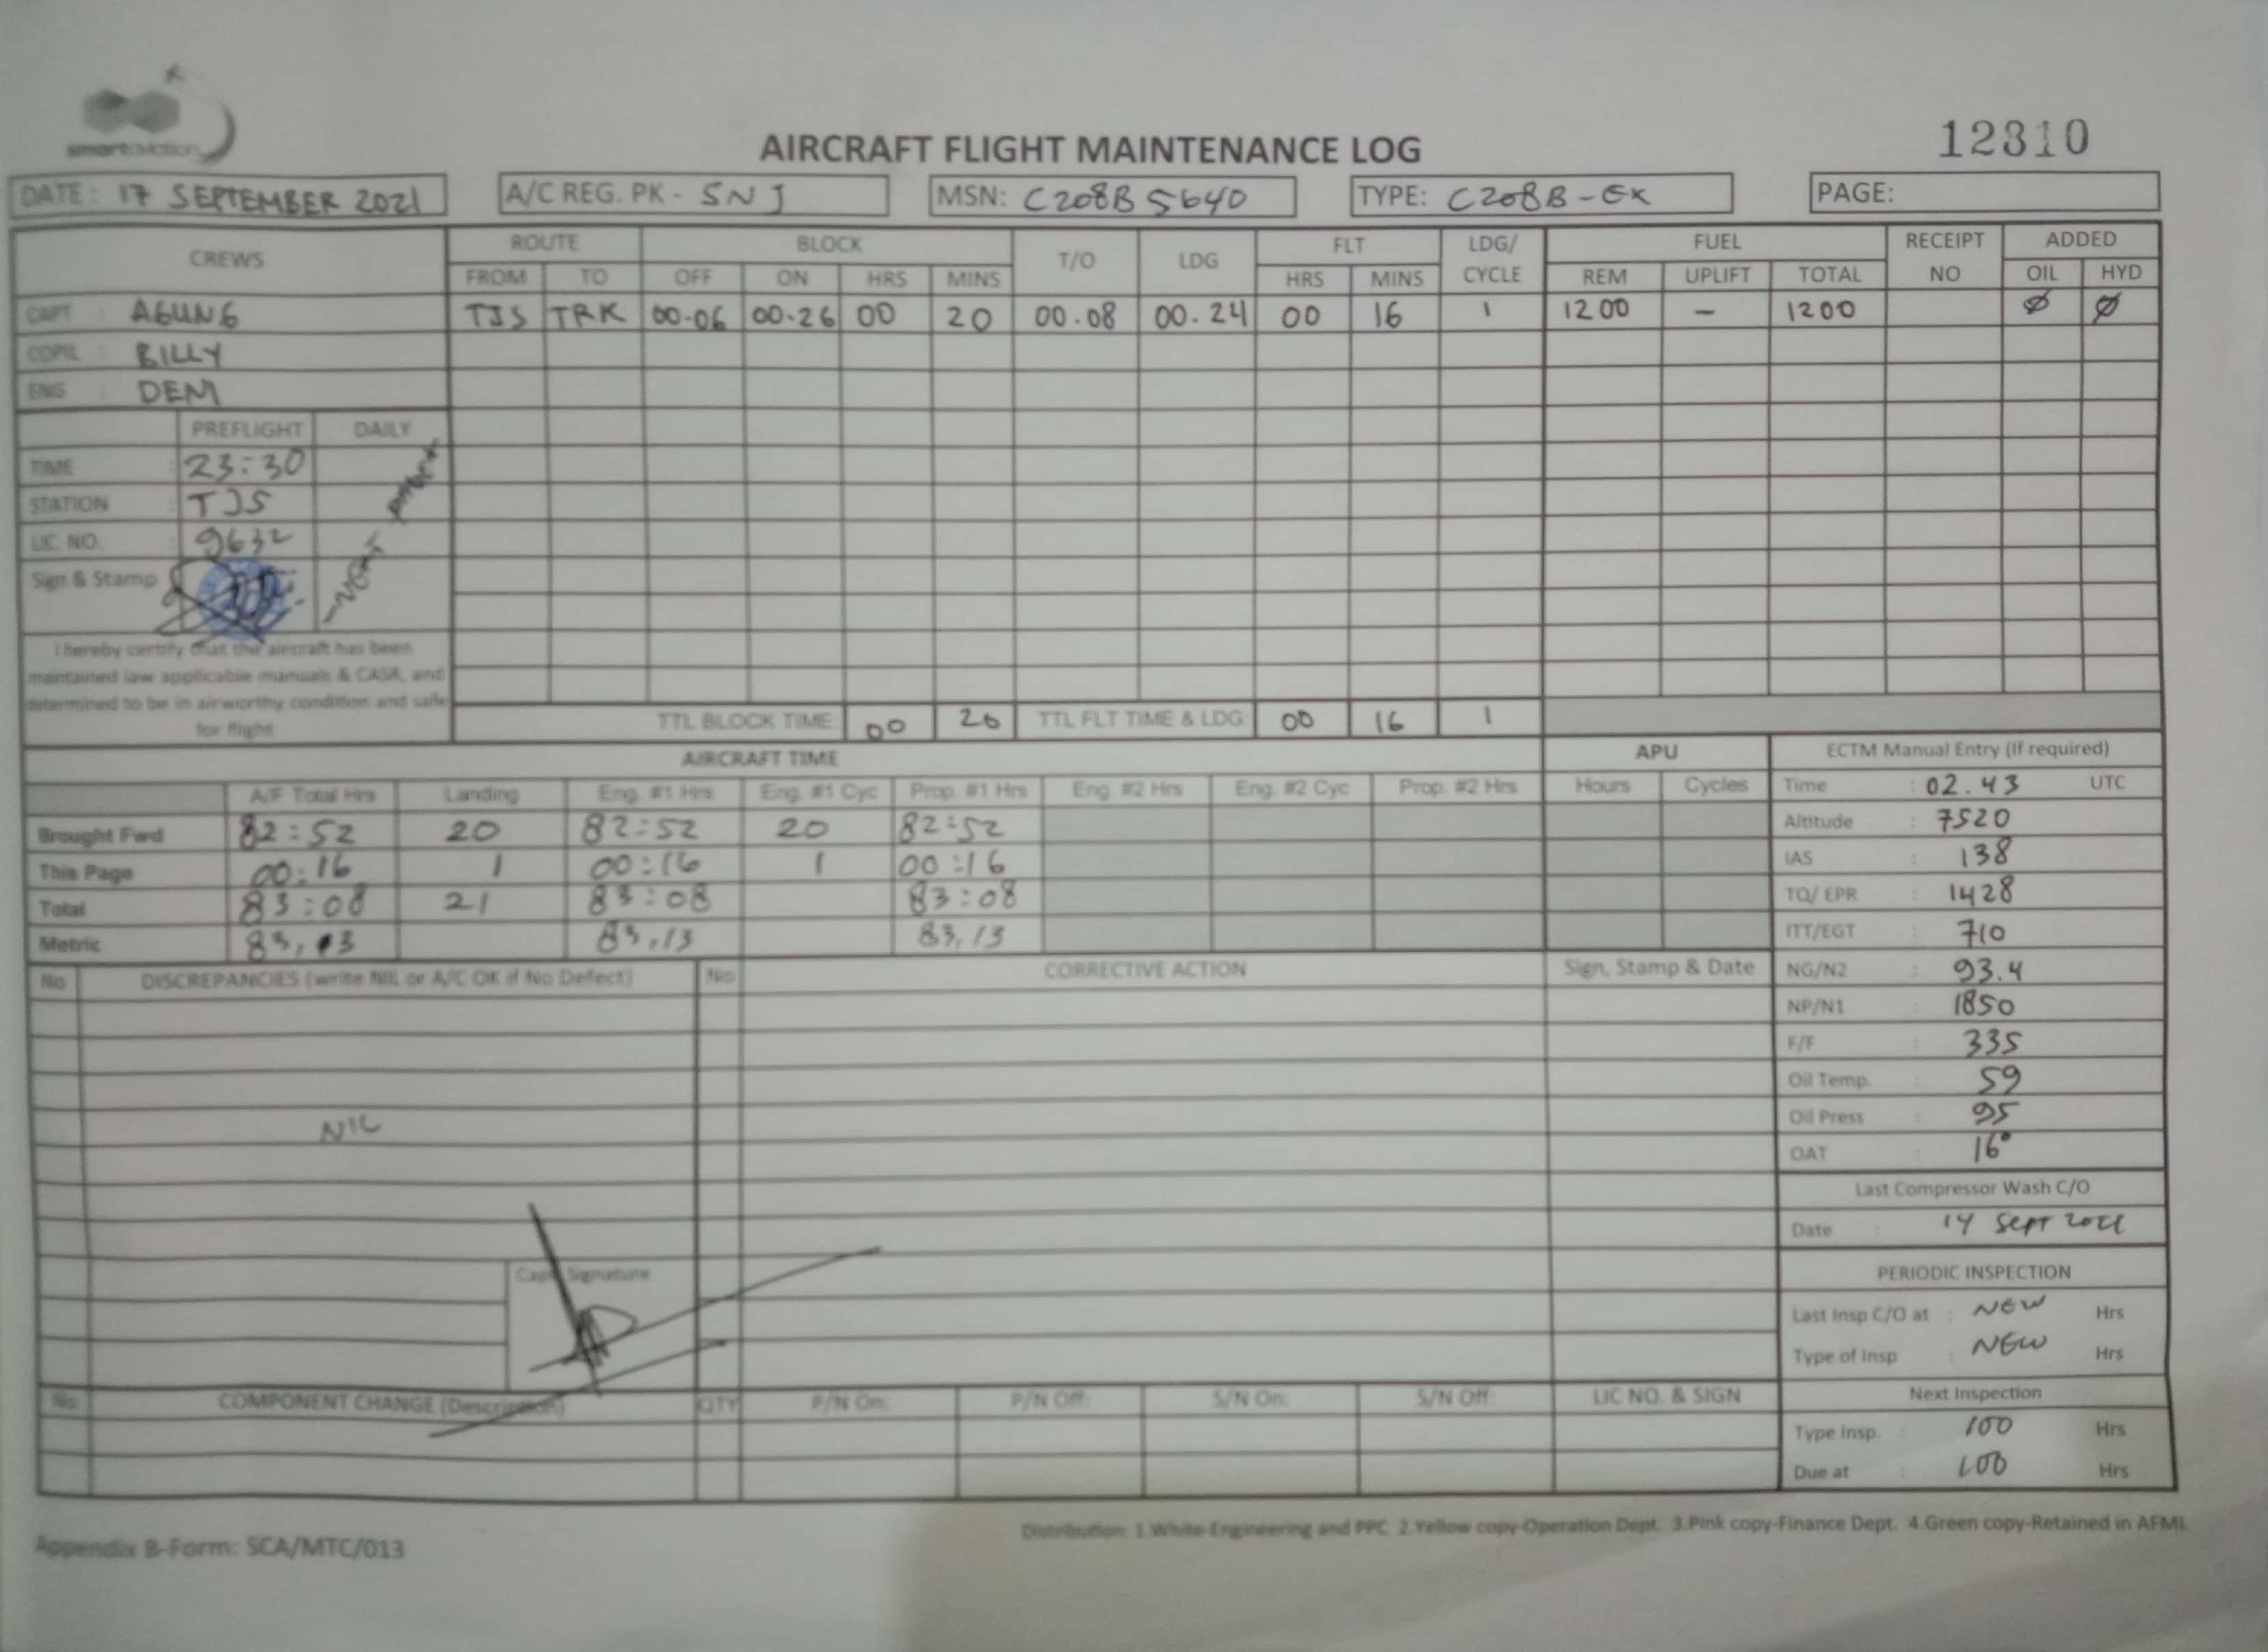 smart aviation
AIRCRAFT FLIGHT MAINTENANCE LOG
12310
DATE: 17 SEPTEMBER 2021
A/C REG. PK - SNJ
MSN: C208B5640
TYPE: C208B-EX
PAGE:
CREWS ROUTE BLOCK T/O LDG FLT LDG/ CYCLE FUEL RECEIPT NO ADDED
FROM TO OFF ON HRS MINS HRS MINS REM UPLIFT TOTAL OIL HYD
CAPT : AGUNG TJS TRK 00.06 00.26 00 20 00.08 00.24 00 16 1 1200 - 1200 Ø Ø
COPIL : BILLY
ENG : DENI
PREFLIGHT DAILY
TIME : 23:30
STATION : TJS
LIC. NO. : 9632
Sign & Stamp
I hereby certify that the aircraft has been
maintained iaw applicable manuals & CASR, and
determined to be in airworthy condition and safe
for flight
TTL BLOCK TIME: 00 20 TTL FLT TIME & LDG: 00 16 1
AIRCRAFT TIME APU ECTM Manual Entry (If required)
A/F Total Hrs Landing Eng. #1 Hrs Eng. #1 Cyc Prop. #1 Hrs Eng. #2 Hrs Eng. #2 Cyc Prop. #2 Hrs Hours Cycles
Brought Fwd 82:52 20 82:52 20 82:52
This Page 00:16 1 00:16 1 00:16
Total 83:08 21 83:08 83:08
Metric 83,13 83,13 83,13
Time : 02.43 UTC
Altitude : 7520
IAS : 138
TQ/ EPR : 1428
ITT/EGT : 710
NG/N2 : 93.4
NP/N1 : 1850
F/F : 335
Oil Temp. : 59
Oil Press : 95
OAT : 16°
Last Compressor Wash C/O
Date : 14 SEPT 2021
PERIODIC INSPECTION
Last Insp C/O at : NEW Hrs
Type of Insp : NEW Hrs
Next Inspection
Type Insp. : 100 Hrs
Due at : 100 Hrs
No DISCREPANCIES (write NIL or A/C OK if No Defect) No CORRECTIVE ACTION Sign, Stamp & Date
NIL
Capt. Signature
No COMPONENT CHANGE (Description) QTY P/N On: P/N Off: S/N On: S/N Off: LIC NO. & SIGN
Appendix B-Form: SCA/MTC/013
Distribution: 1.White-Engineering and PPC 2.Yellow copy-Operation Dept. 3.Pink copy-Finance Dept. 4.Green copy-Retained in AFML